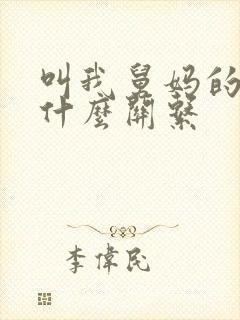 叫我舅妈的
什麼關繫
李偉民